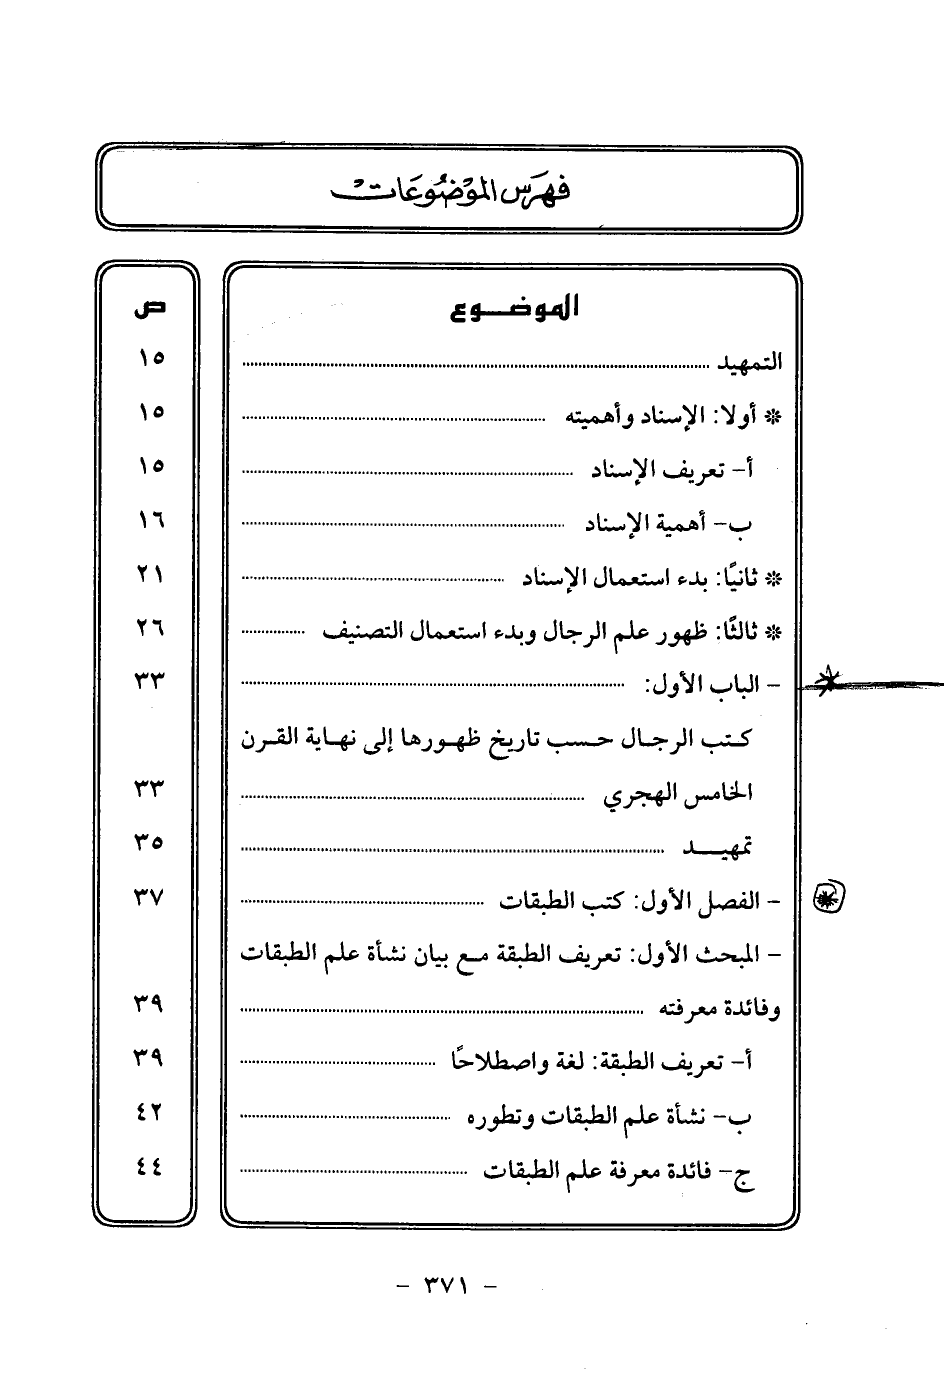 فهرس الموضوعات
الموضوع ص
التمهيد ١٥
* أولا: الإسناد وأهميته ١٥
أ- تعريف الإسناد ١٥
ب- أهمية الإسناد ١٦
* ثانيًا: بدء استعمال الإسناد ٢١
* ثالثًا: ظهور علم الرجال وبدء استعمال التصنيف ٢٦
- الباب الأول: ٣٣
كتب الرجال حسب تاريخ ظهورها إلى نهاية القرن
الخامس الهجري ٣٣
تمهيد ٣٥
- الفصل الأول: كتب الطبقات ٣٧
- المبحث الأول: تعريف الطبقة مع بيان نشأة علم الطبقات
وفائدة معرفته ٣٩
أ- تعريف الطبقة: لغة واصطلاحًا ٣٩
ب- نشأة علم الطبقات وتطوره ٤٢
ج- فائدة معرفة علم الطبقات ٤٤
- ٣٧١ -